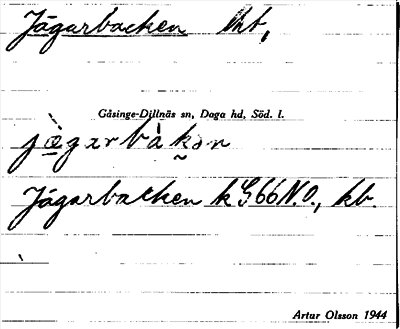 Jägarbacken lht,
Gåsinge-Dillnäs sn, Daga hd, Söd. l.
jägarbakən
Jägarbacken k G66 N.O., kb.
Artur Olsson 1944